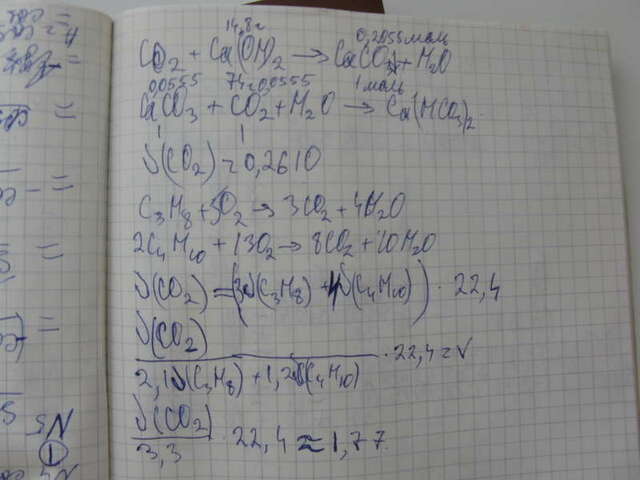 14,8г
0,2055 моль
CO2 + Ca(OH)2 → CaCO3↓ + H2O
0,0555
0,0555
1 моль
CaCO3 + CO2 + H2O → Ca(HCO3)2
1 1
ν(CO2) = 0,2610
C3H8 + 5O2 → 3CO2 + 4H2O
2C4H10 + 13O2 → 8CO2 + 10H2O
ν(CO2) = (3ν(C3H8) + 4ν(C4H10)) · 22,4
ν(CO2)
· 22,4 = V
2,1ν(C3H8) + 1,2ν(C4H10)
ν(CO2)
· 22,4 ≈ 1,77
3,3
N5
1